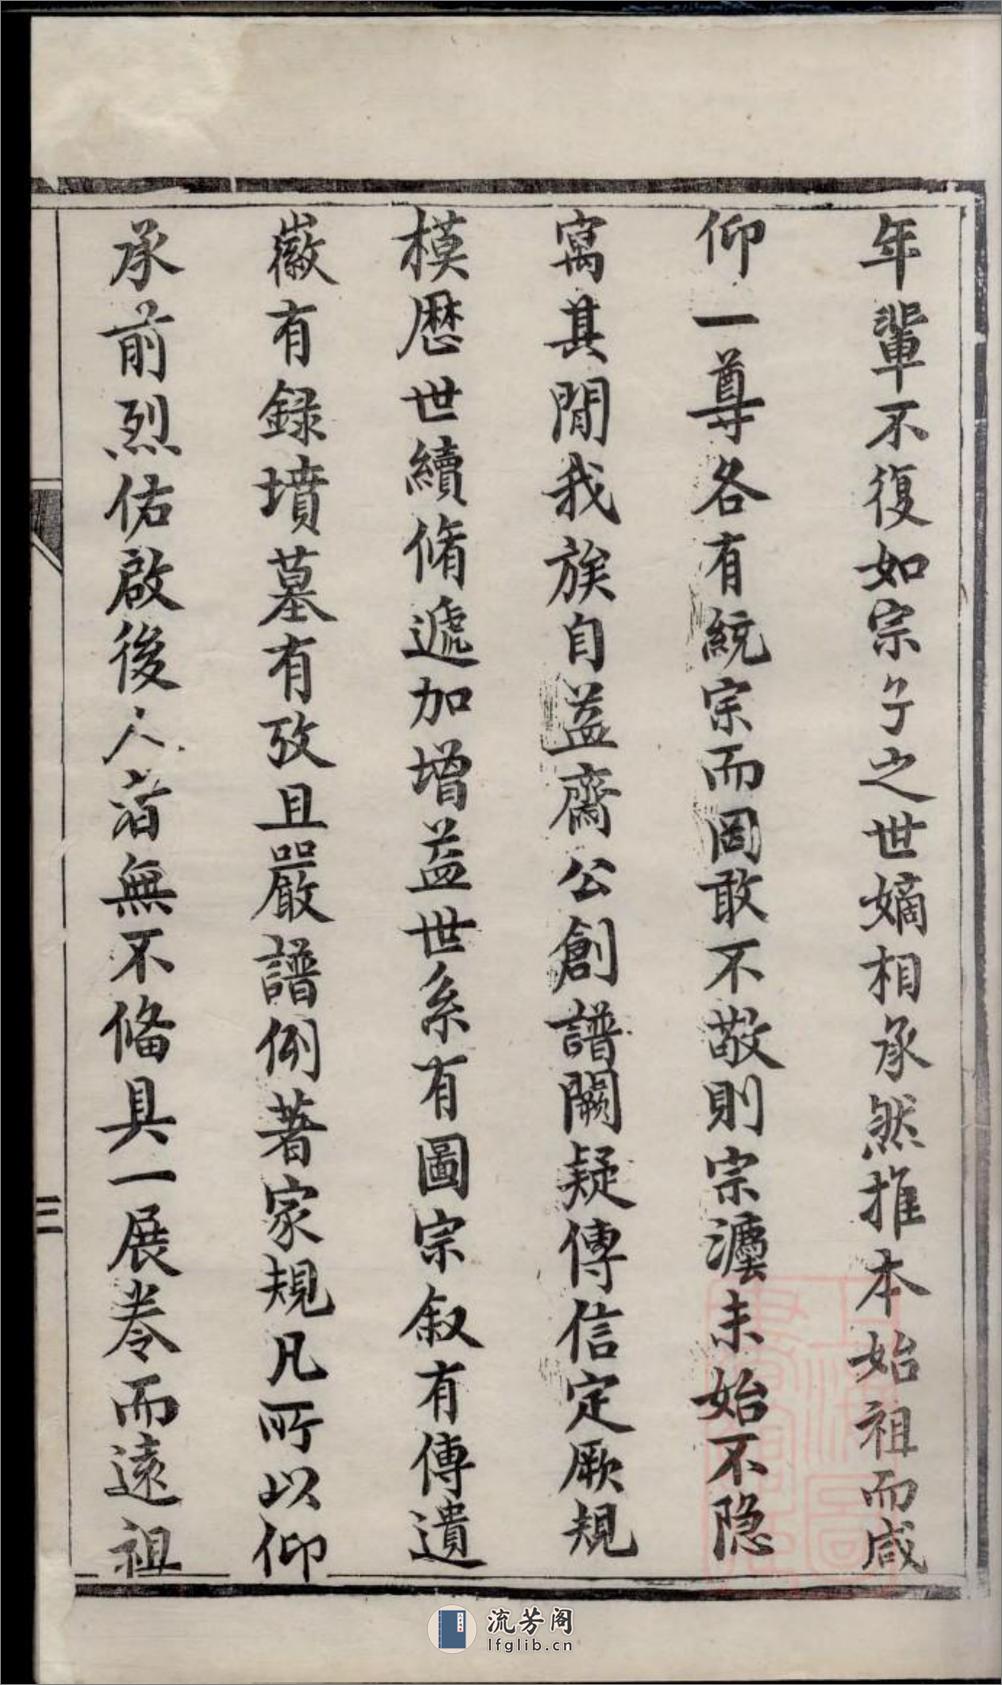 年輩不復如宗子之世嫡相承然推本始祖而咸
仰一尊各有統宗而罔敢不敬則宗灋未始不隐
寓其閒我族自益齋公創譜闕疑傳信定厥規
模歷世續脩遞加增益世系有圖宗叙有傳遺
徽有録墳墓有攷且嚴譜例著家規凡所以仰
承前烈佑啟後人者無不俻具一展卷而遠祖
三
流芳阁
lfglib.cn